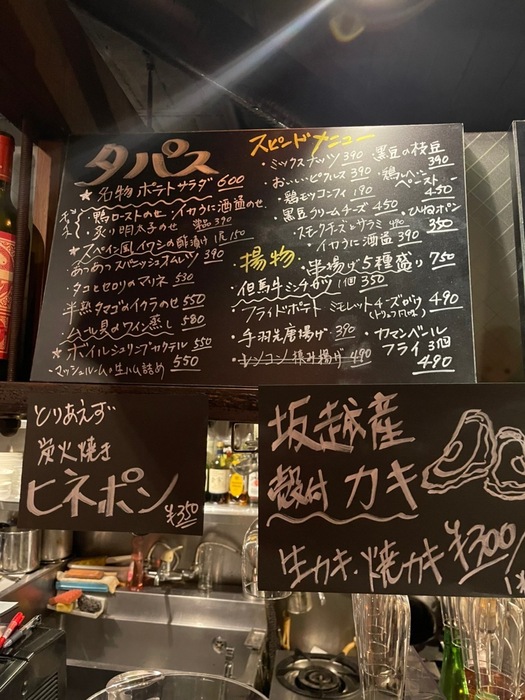 タパス
★名物 ポテトサラダ 600
鴨ローストのせ・イカうに酒盗のせ
炙り明太子のせ 単品390
★スペイン風イワシの酢漬け 1尾150
あつあつスパニッシュオムレツ 390
・タコとセロリのマリネ 530
半熟タマゴのイクラのせ 550
・ムール貝のワイン蒸し 580
★ボイルシュリンプカクテル 550
・マッシュルームの生ハム詰め 550
スピードメニュー
・ミックスナッツ 390
・おいしいピクルス 390
・鶏モツコンフィ 190
・黒豆クリームチーズ 450
・スモークチーズとサラミ 490
・イカうに酒盗 390
・黒豆の枝豆 390
・鶏レバーペースト 450
・ひねポン 350
揚物
・串揚げ5種盛り 750
・但馬牛ミンチカツ 1個 350
・フライドポテト ミモレットチーズがけ 490
(トリュフ風味)
・手羽先唐揚げ 390
・レンコン挟み揚げ 490
・カマンベールフライ 3個 490
とりあえず
炭火焼き
ヒネポン
¥350
坂越産
殻付 カキ
生カキ・焼カキ ¥300/